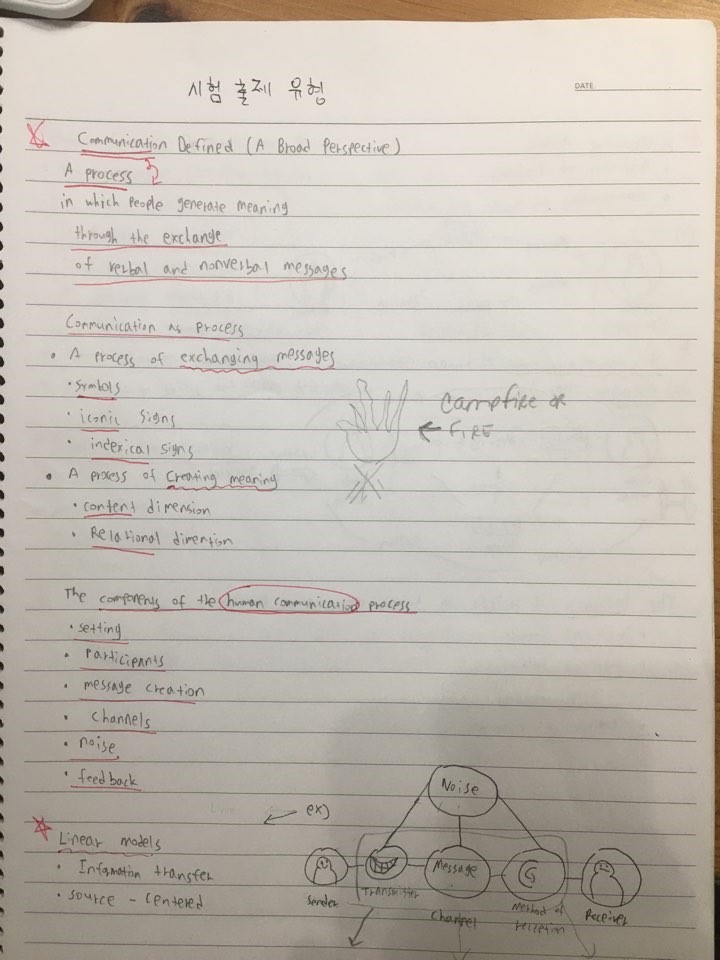 시험 출제 유형
DATE
Communication Defined (A Broad Perspective)
A process
in which people generate meaning
through the exchange
of verbal and nonverbal messages
Communication as process
• A process of exchanging messages
• symbols
• iconic signs
• indexical signs
Campfire or
← FIRE
• A process of Creating meaning
• content dimension
• Relational dimention
The components of the human communication process
• setting
• Participants
• message creation
• channels
• noise
• feedback
ex)
Noise
Linear models
• Information transfer
• source - centered
Message
Sender
Transmitter
Channel
Method of
reception
Receiver